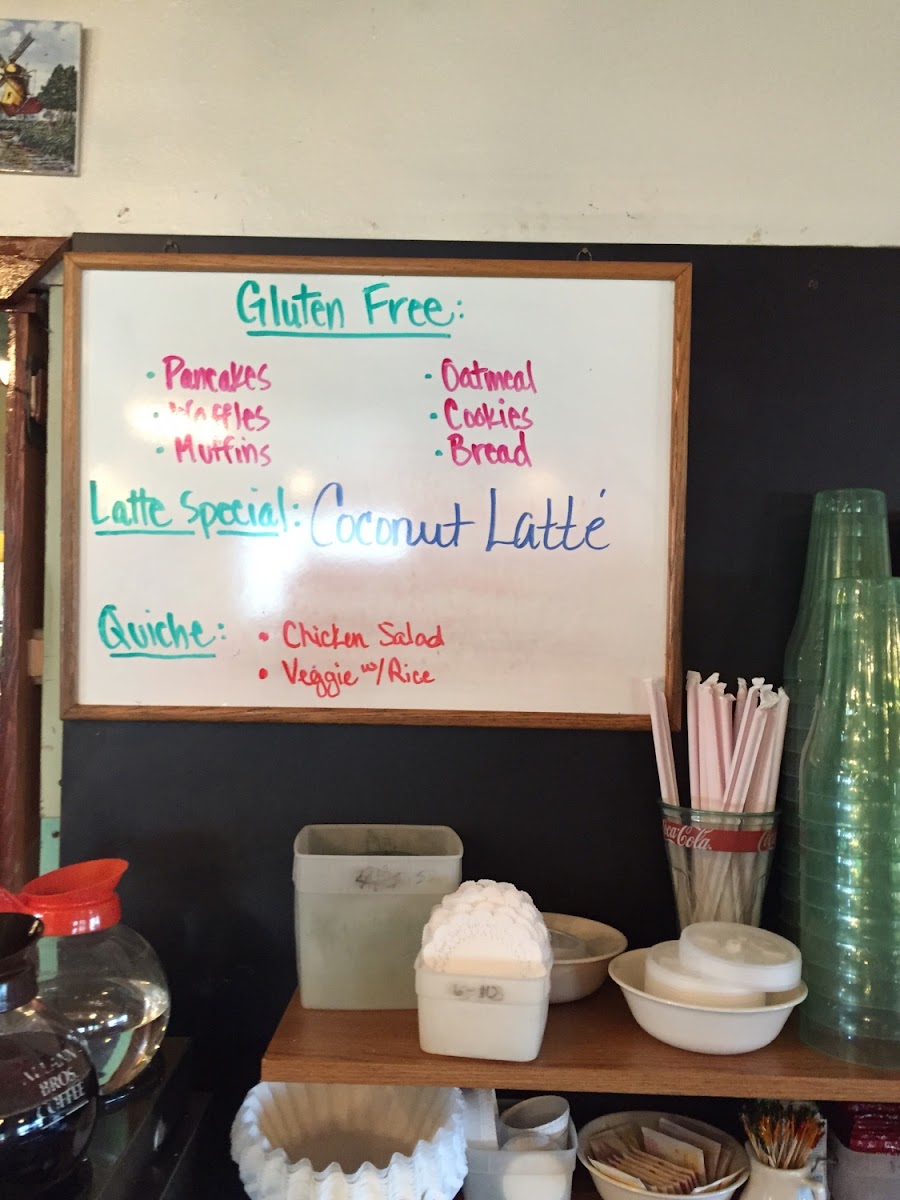 Gluten Free:
• Pancakes
• Oatmeal
• Waffles
• Cookies
• Muffins
• Bread
Latte Special: Coconut Latté
Quiche: • Chicken Salad
• Veggie w/ Rice
Coca-Cola
6-10
ALLANN
BROS.
COFFEE